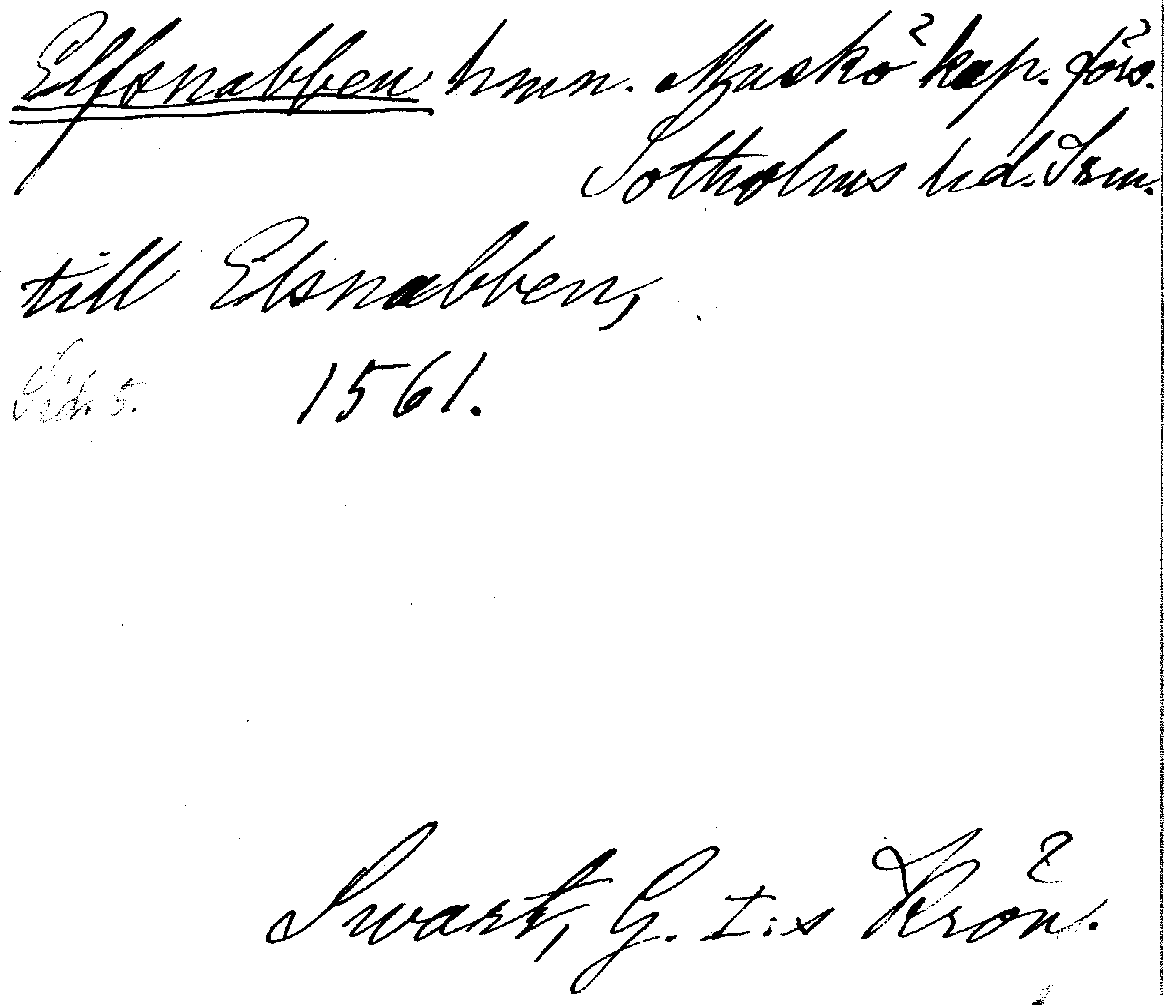 Elfsnabben hmn. Muskö kap. förs.
Sotholms hd. Srm.
till Elsnabben,
Sid. 5. 1561.
Swart, G. I:s Krön.